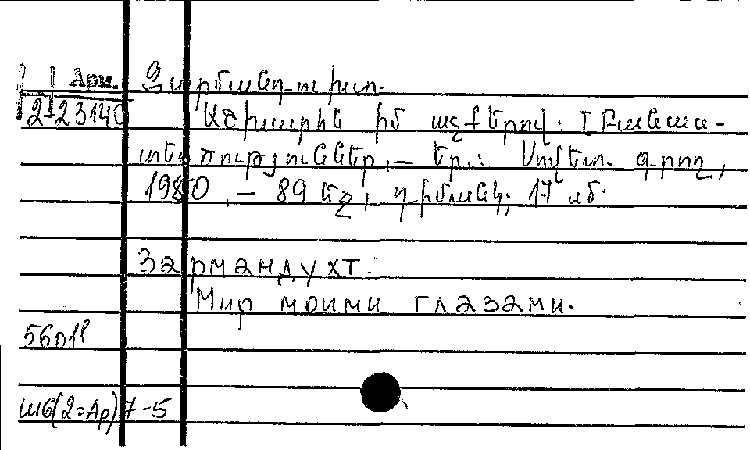 Арм. Զարմանդուխտ.
2-23140 Աշխարհն իմ աչքերով: [Բանաս-
տեղծություններ.— Եր.: Սովետ. գրող,
1980.— 89 էջ, դիմանկ.; 17 սմ.
Зармандухт.
Мир моими глазами.
56п1
ш6(2=Ар)7-5